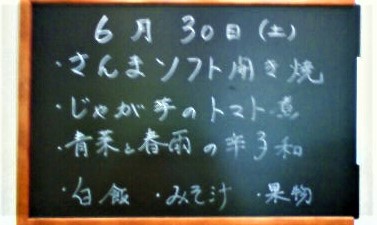 6月30日(土)
・さんまソフト開き焼
・じゃが芋のトマト煮
・青菜と春雨の辛子和
・白飯 ・みそ汁 ・果物